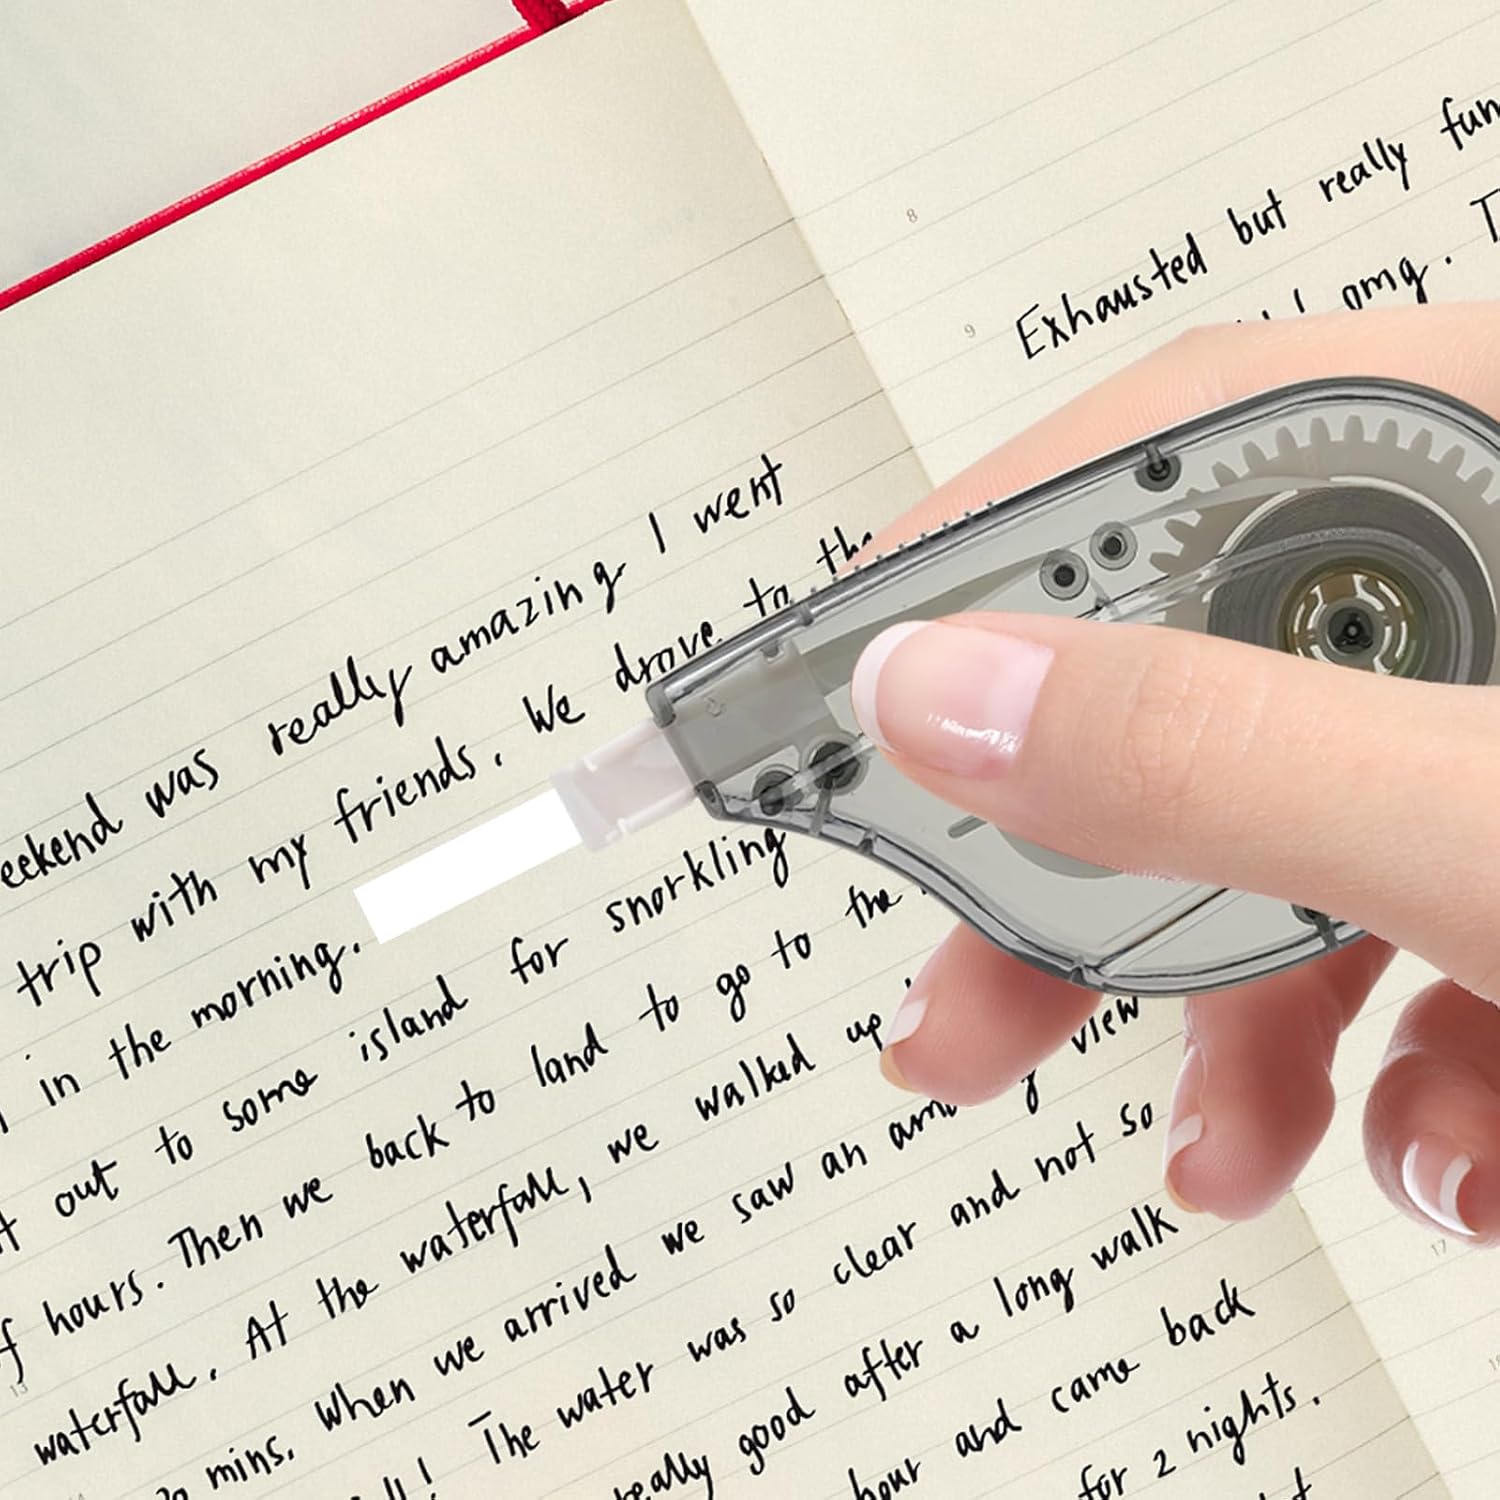 weekend was really amazing. I went
trip with my friends. We drove to the
in the morning.
out to some island for snorkling
of hours. Then we back to land to go to the
waterfall. At the waterfall, we walked up
mins. When we arrived we saw an view
! The water was so clear and not so
really good after a long walk
hour and came back
for 2 nights.
8
Exhausted but really fun
9
omg.
13
17